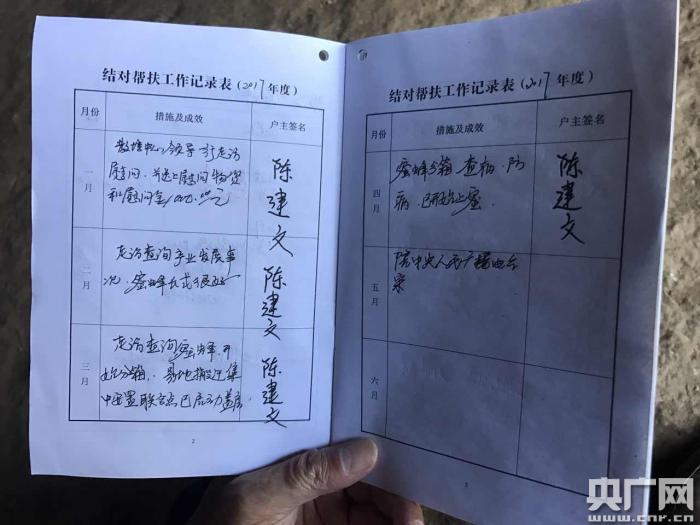 结对帮扶工作记录表(2017年度)
月份 措施及成效 户主签名
一月
领导一行走访
慰问,并送上慰问物资
和慰问金1000.00元
陈建文
二月
走访查询产业发展事
况,蜜蜂长式很好
陈建文
三月
走访查询蜜蜂,开
始分箱,易地搬迁集
中安置联合点已启动盖房
陈建文
2
结对帮扶工作记录表(2017年度)
月份 措施及成效 户主签名
四月
蜜蜂分箱,查箱,防
病,已开始上蜜.
陈建文
五月
陪中央人民广播电台
来
六月
3
央广网
www.cnr.cn